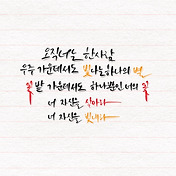 오직 너는 한 사람
우주 가운데서도 빛나는 하나의 별
꽃밭 가운데서도 하나뿐인 너의 꽃
너 자신을 살아라
너 자신을 빛내라